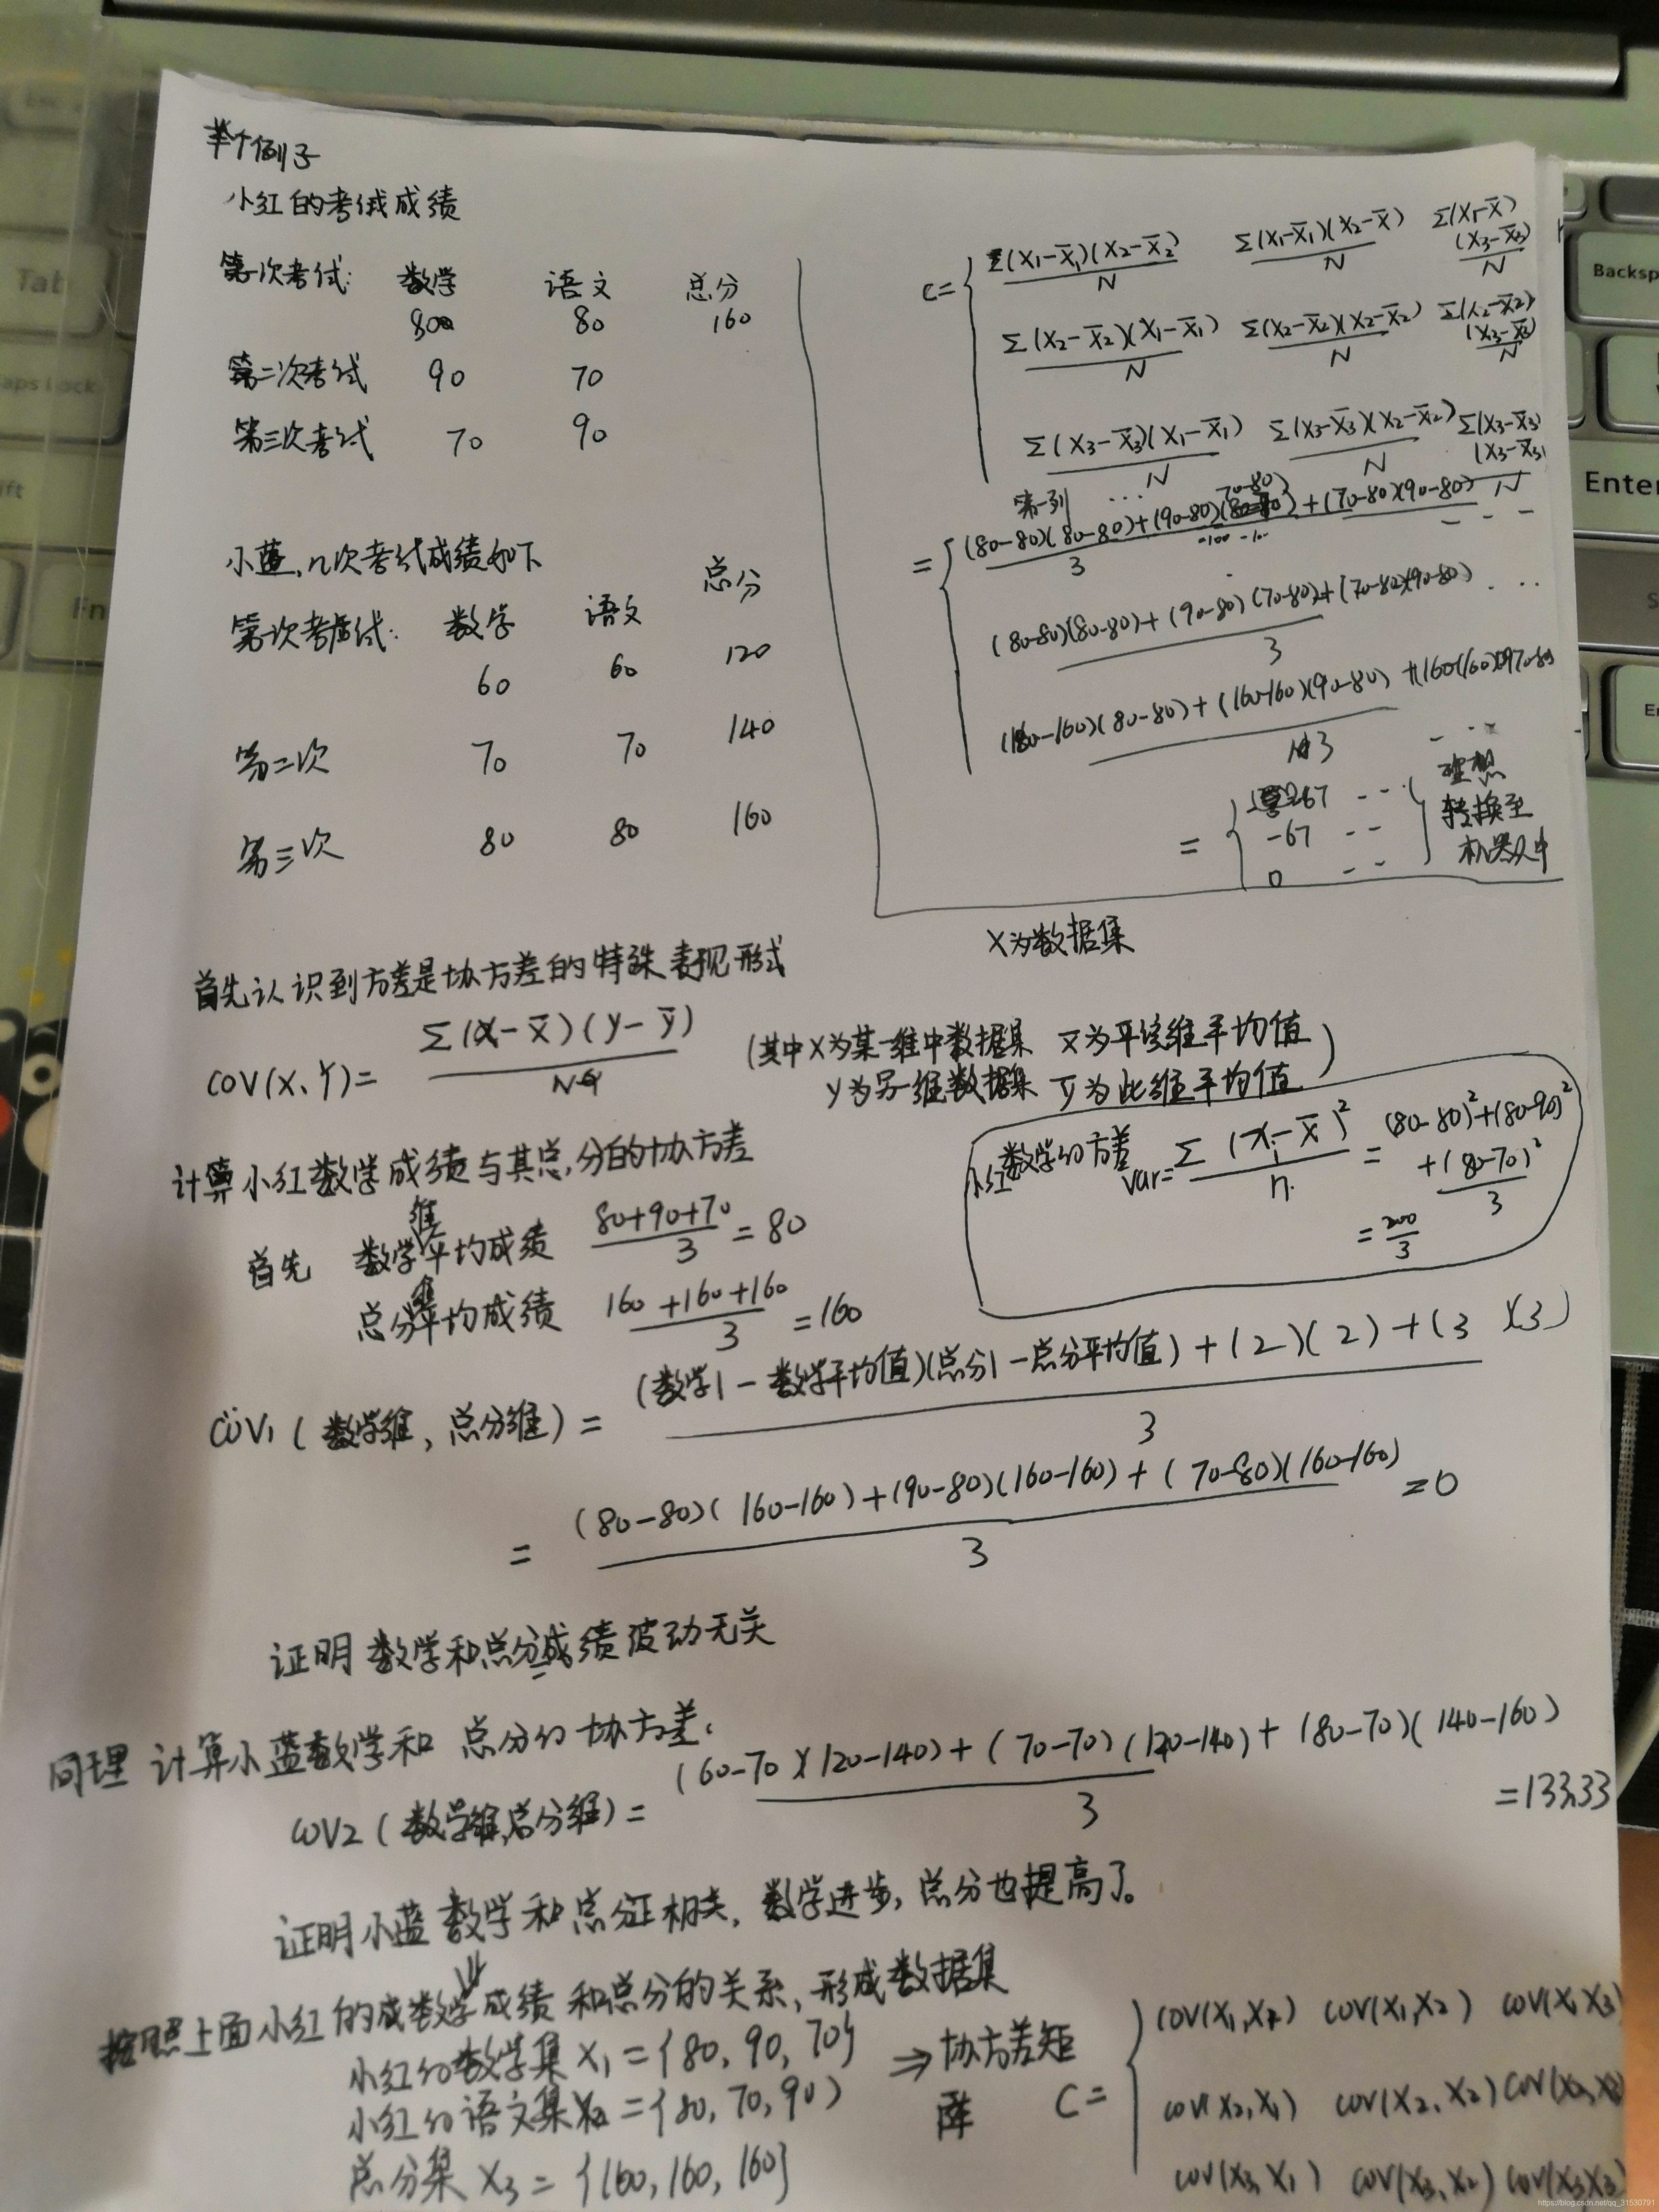 举个例子
小红的考试成绩
第一次考试: 数学 语文 总分
80 80 160
第二次考试 90 70
第三次考试 70 90
小蓝,几次考试成绩如下
总分
第一次考试: 数学 语文
60 60 120
第二次 70 70 140
第三次 80 80 160
C= Σ(X1-X̄1)(X2-X̄2)/N Σ(X1-X̄1)(X2-X̄)/N Σ(X1-X̄)(X3-X̄3)/N
Σ(X2-X̄2)(X1-X̄1)/N Σ(X2-X̄2)(X2-X̄2)/N Σ(X2-X̄2)(X3-X̄3)/N
Σ(X3-X̄3)(X1-X̄1)/N Σ(X3-X̄3)(X2-X̄2)/N Σ(X3-X̄3)(X3-X̄3)/N
第一列 ...
= (80-80)(80-80)+(90-80)(70-80)+(70-80)(90-80)/3 - - -
(80-80)(80-80)+(90-80)(70-80)+(70-80)(90-80)/3 ...
(160-160)(80-80)+(160-160)(90-80)+(160-160)(70-80)/3
= 67 - - -
-67 - -
0 - -
转换至
机器人中
X为数据集
首先认识到方差是协方差的特殊表现形式
COV(X、Y)= Σ(X-X̄)(y-ȳ)/N
(其中X为某一维中数据集 X̄为该维平均值
y为另一维数据集 ȳ为此维平均值)
小红数学的方差 var= Σ(Xi-X̄)²/n = (80-80)²+(80-90)²+(80-70)²/3
=200/3
计算小红数学成绩与其总分的协方差
首先 数学维平均成绩 80+90+70/3 =80
总分维平均成绩 160+160+160/3 =160
COV1(数学维,总分维)= (数学1-数学平均值)(总分1-总分平均值)+(2)(2)+(3)(3)/3
= (80-80)(160-160)+(90-80)(160-160)+(70-80)(160-160)/3 =0
证明数学和总分成绩波动无关
同理 计算小蓝数学和总分的协方差.
COV2(数学维,总分维)= (60-70)(120-140)+(70-70)(120-140)+(80-70)(140-160)/3 =133.33
证明小蓝数学和总分正相关,数学进步,总分也提高了。
按照上面小红的成数学成绩和总分的关系,形成数据集
小红的数学集 X1={80,90,70}
小红的语文集 X2={80,70,90}
总分集 X3={160,160,160}
⇒ 协方差矩阵
C= COV(X1,X1) COV(X1,X2) COV(X1,X3)
COV(X2,X1) COV(X2,X2) COV(X2,X3)
COV(X3,X1) COV(X3,X2) COV(X3,X3)
https://blog.csdn.net/qq_31530791